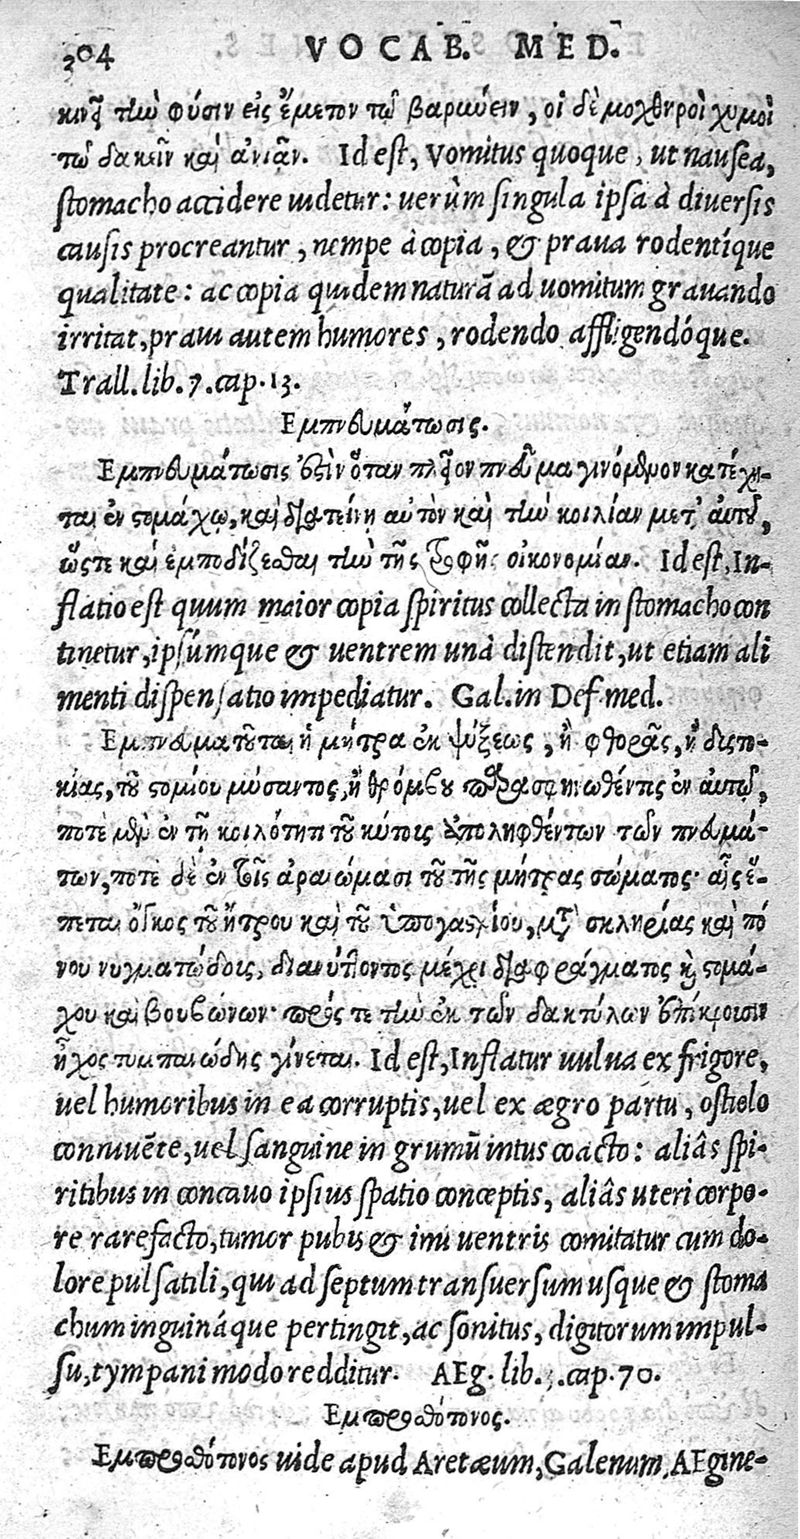 304 VOCAB. MED.
κινεῖ τὴν φύσιν εἰς ἔμετον τῷ βαρύνειν, οἱ δὲ μοχθηροὶ χυμοὶ
τῷ δακεῖν καὶ ἀνιᾶν. Id est, Vomitus quoque, ut nausea,
stomacho accidere uidetur: uerùm singula ipsa à diuersis
causis procreantur, nempe à copia, & praua rodentíque
qualitate: ac copia quidem naturã ad uomitum grauando
irritat, praui autem humores, rodendo affligendóque.
Trall. lib. 7. cap. 13.
Εμπνευμάτωσις.
Εμπνευμάτωσις ἐστὶν ὅταν πλεῖον πνεῦμα γινόμενον κατέχη-
ται ἐν στομάχῳ, καὶ διατείνη αὐτὸν καὶ τὴν κοιλίαν μετ' αὐτοῦ,
ὥστε καὶ ἐμποδίζεσθαι τὴν τῆς τροφῆς οἰκονομίαν. Id est, In-
flatio est quum maior copia spiritus collecta in stomacho con
tinetur, ipsúmque & uentrem unà distendit, ut etiam ali
menti dispensatio impediatur. Gal. in Def. med.
Εμπνευματοῦται ἡ μήτρα ἐκ ψύξεως, ἢ φθορᾶς, ἢ δυστο-
κίας, τοῦ στομίου μύσαντος, ἢ θρόμβου παρασφηνωθέντος ἐν αὐτῷ,
ποτὲ μὲν ἐν τῇ κοιλότητι τοῦ κύτους ἀποληφθέντων τῶν πνευμά-
των, ποτὲ δὲ ἐν τοῖς ἀραιώμασι τοῦ τῆς μήτρας σώματος· αἷς ἕ-
πεται ὄγκος τοῦ ἤτρου καὶ τοῦ ὑπογαστρίου, μετὰ σκληρίας καὶ πό
νου νυγματώδους, διανύοντος μέχρι διαφράγματος καὶ στομά-
χου καὶ βουβώνων· πρός τε τὴν ἐκ τῶν δακτύλων ἐπίκρουσιν
ἦχος τυμπανώδης γίνεται. Id est, Inflatur uulua ex frigore,
uel humoribus in ea corruptis, uel ex ægro partu, ostiolo
conniuẽte, uel sanguine in grumũ intus coacto: aliâs spi-
ritibus in concauo ipsius spatio conceptis, aliâs uteri corpo-
re rarefacto, tumor pubis & imi uentris comitatur cum do-
lore pulsatili, qui ad septum transuersum usque & stoma
chum inguináque pertingit, ac sonitus, digitorum impul-
su, tympani modo redditur. AEg. lib. cap. 70.
Εμπροσθότονος.
Εμπροσθότονος uide apud Aretæum, Galenum, AEgine-